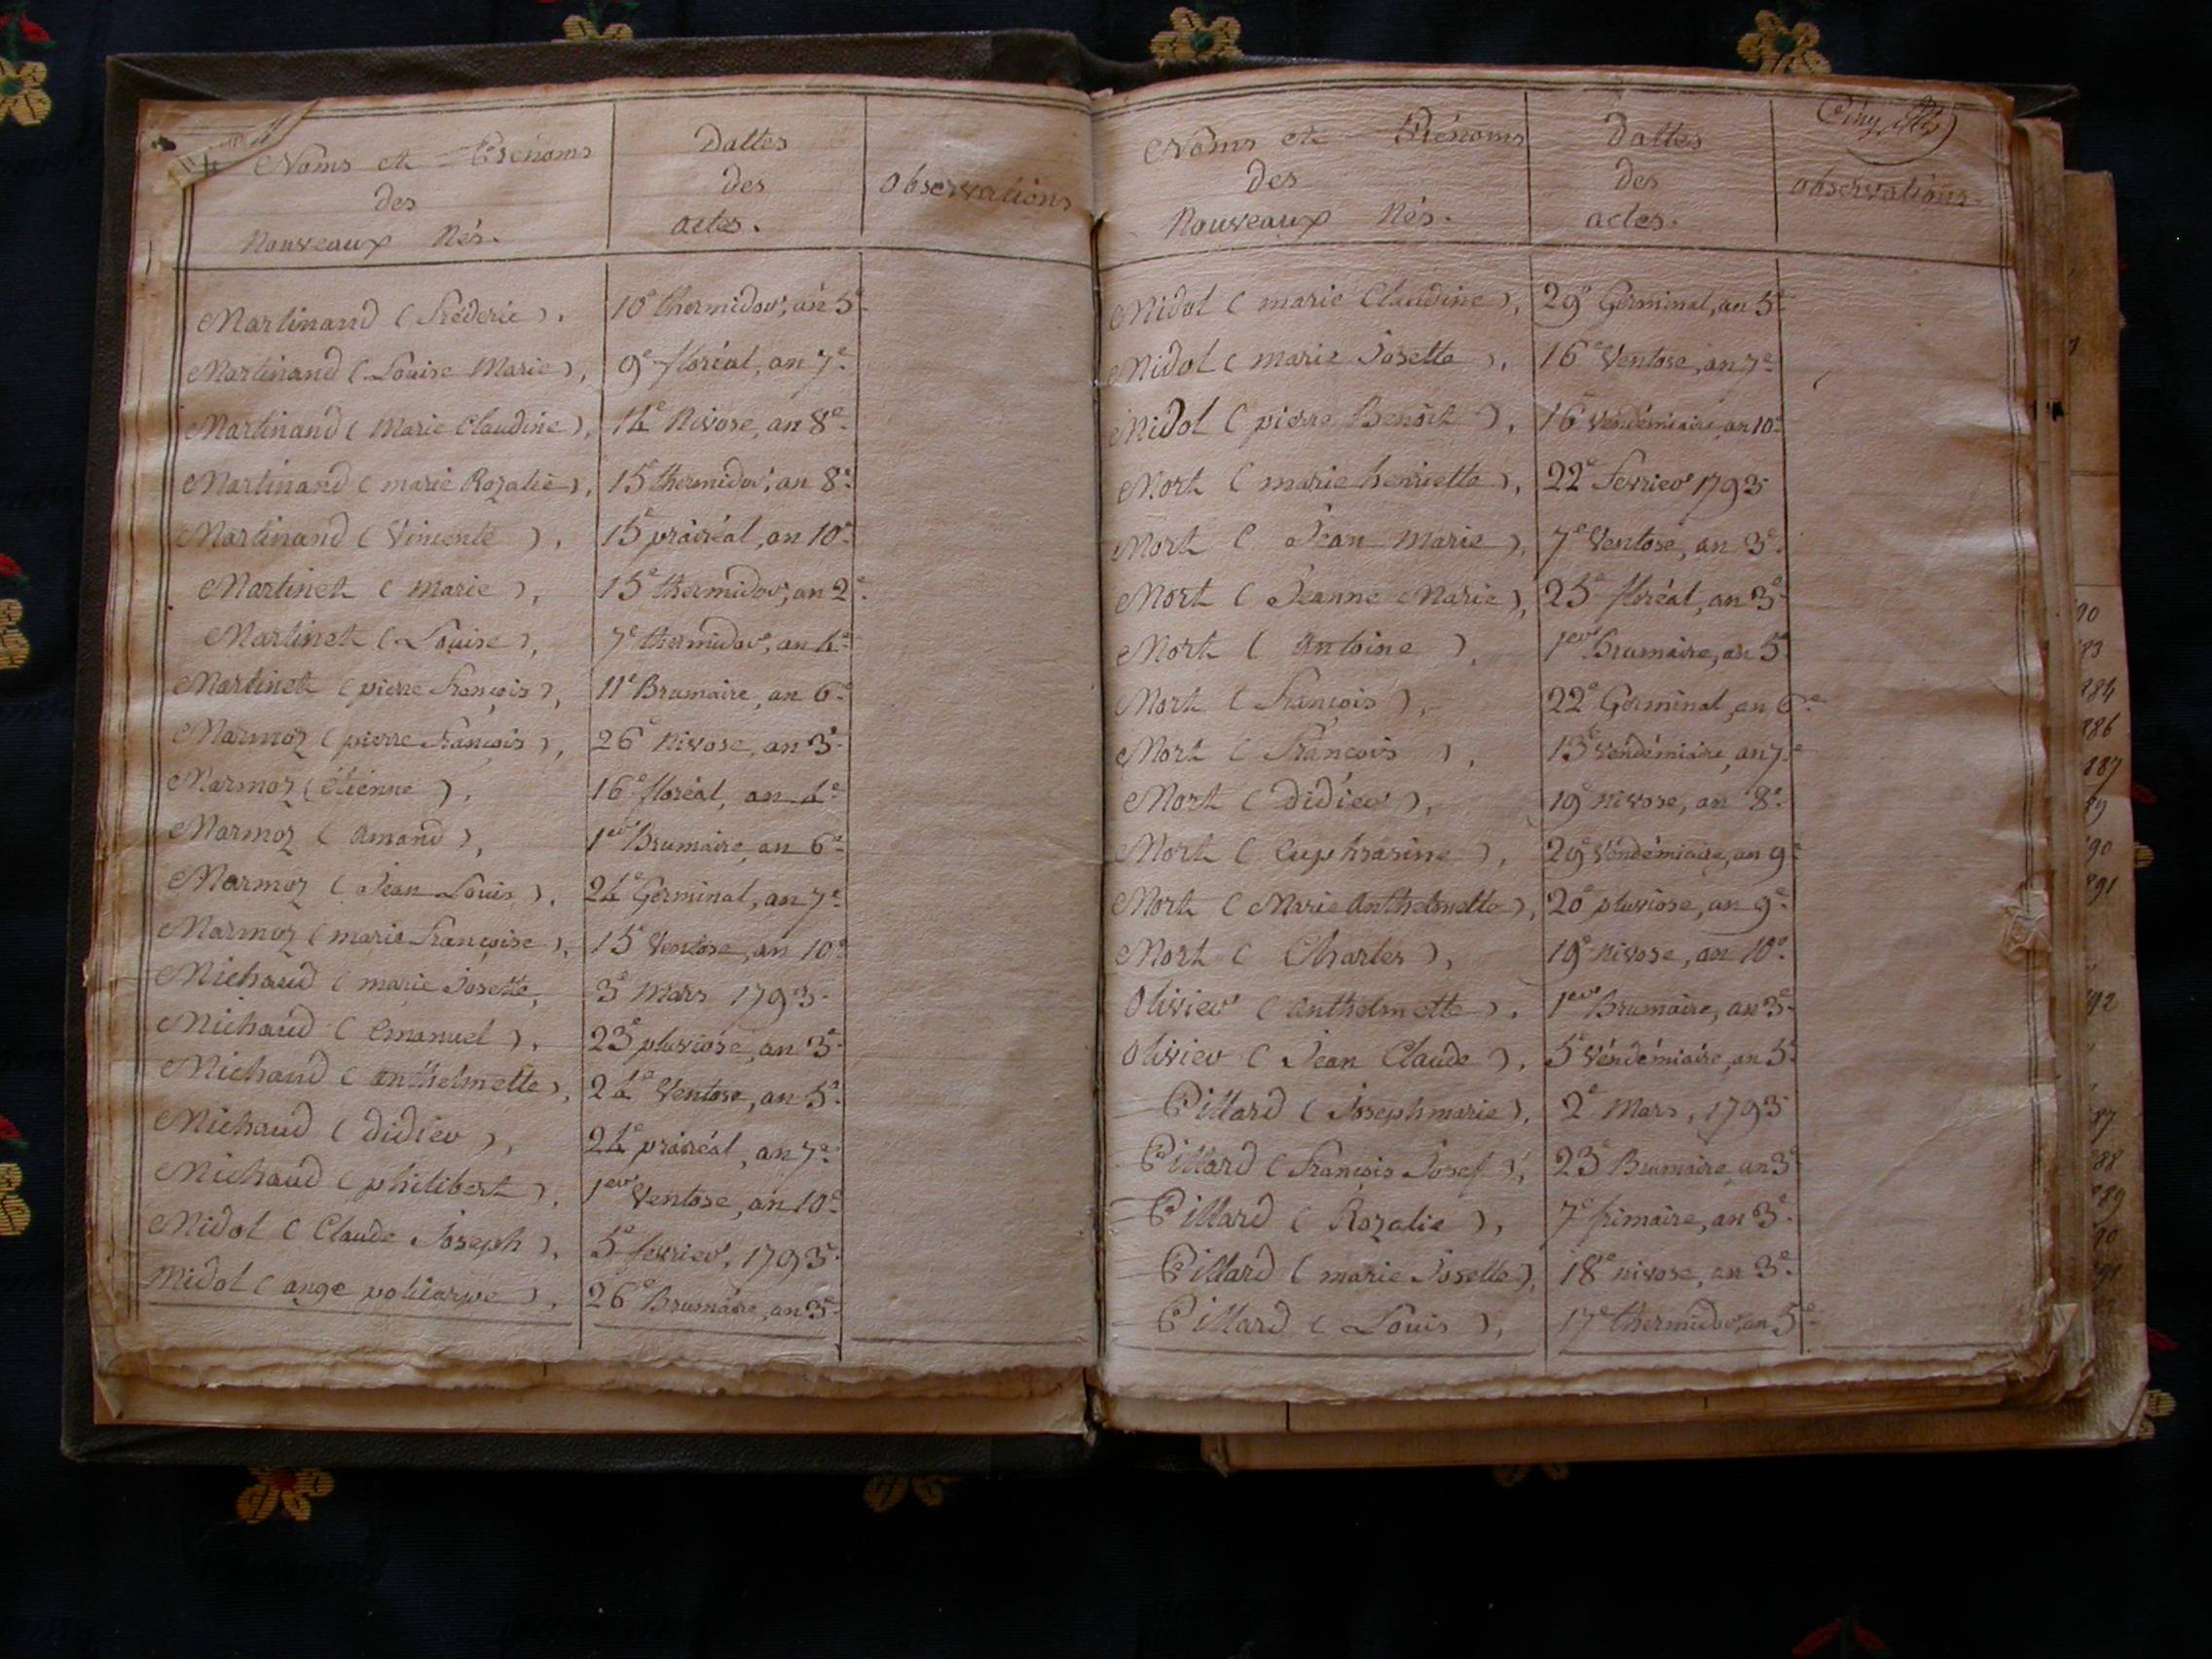 Noms et Prénoms
des
Nouveaux Nés.
Dattes
des
actes.
observations
Martinand (Fréderic). 10e thermidor, an 5e
Martinand (Louise Marie), 9e floréal, an 7e
Martinand (Marie Claudine), 14e Nivose, an 8e
Martinand (marie Rozalie), 15e thermidor, an 8e
Martinand (Vincente), 15e prairéal, an 10e
Martinet (Marie), 15e thermidor, an 2e
Martinet (Louise), 7e thermidor, an 4e
Martinet (pierre François), 11e Brumaire, an 6e
Marmoz (pierre François), 26e Nivose, an 3e
Marmoz (étienne), 16e floréal, an 4e
Marmoz (amand), 1er Brumaire, an 6e
Marmoz (Jean Louis), 24e Germinal, an 7e
Marmoz (marie Françoise), 15e Ventose, an 10e
Michaud (marie Josette, 3e Mars 1793.
Michaud (emanuel), 23e pluviose, an 3e
Michaud (anthelmette), 24e Ventose, an 5e
Michaud (didier), 24e prairéal, an 7e
Michaud (philibert), 1er Ventose, an 10e
Midol (Claude Joseph), 5e fevrier, 1793.
Midol (ange policarpe), 26e Brumaire, an 3e
Noms et Prénoms
des
Nouveaux Nés.
Dattes
des
actes.
observations.
Midol (marie Claudine), 29e Germinal, an 5e
Midol (marie Josette), 16e Ventose, an 7e
Midol (pierre Benoit), 16e Vendémiaire, an 10e
Mort (marie henriette), 22e Fevrier 1793
Mort (Jean Marie), 7e Ventose, an 3e
Mort (Jeanne Marie), 25e floréal, an 3e
Mort (Antoine), 1er Brumaire, an 5e
Mort (François), 22e Germinal, an 6e
Mort (François), 13e Vendémiaire, an 7e
Mort (didier), 19e nivose, an 8e
Mort (euphrasine), 29e Vendémiaire, an 9e
Mort (Marie Anthelmette), 20e pluviose, an 9e
Mort (Charles), 19e nivose, an 10e
Olivier (anthelmette), 1er Brumaire, an 3e
Olivier (Jean Claude), 5e Vendémiaire, an 5e
Pillard (Joseph marie), 2e Mars, 1793
Pillard (François Josef), 23e Brumaire, an 3e
Pillard (Rozalie), 7e frimaire, an 3e
Pillard (marie Josette), 18e nivose, an 3e
Pillard (Louis), 17e thermidor, an 5e